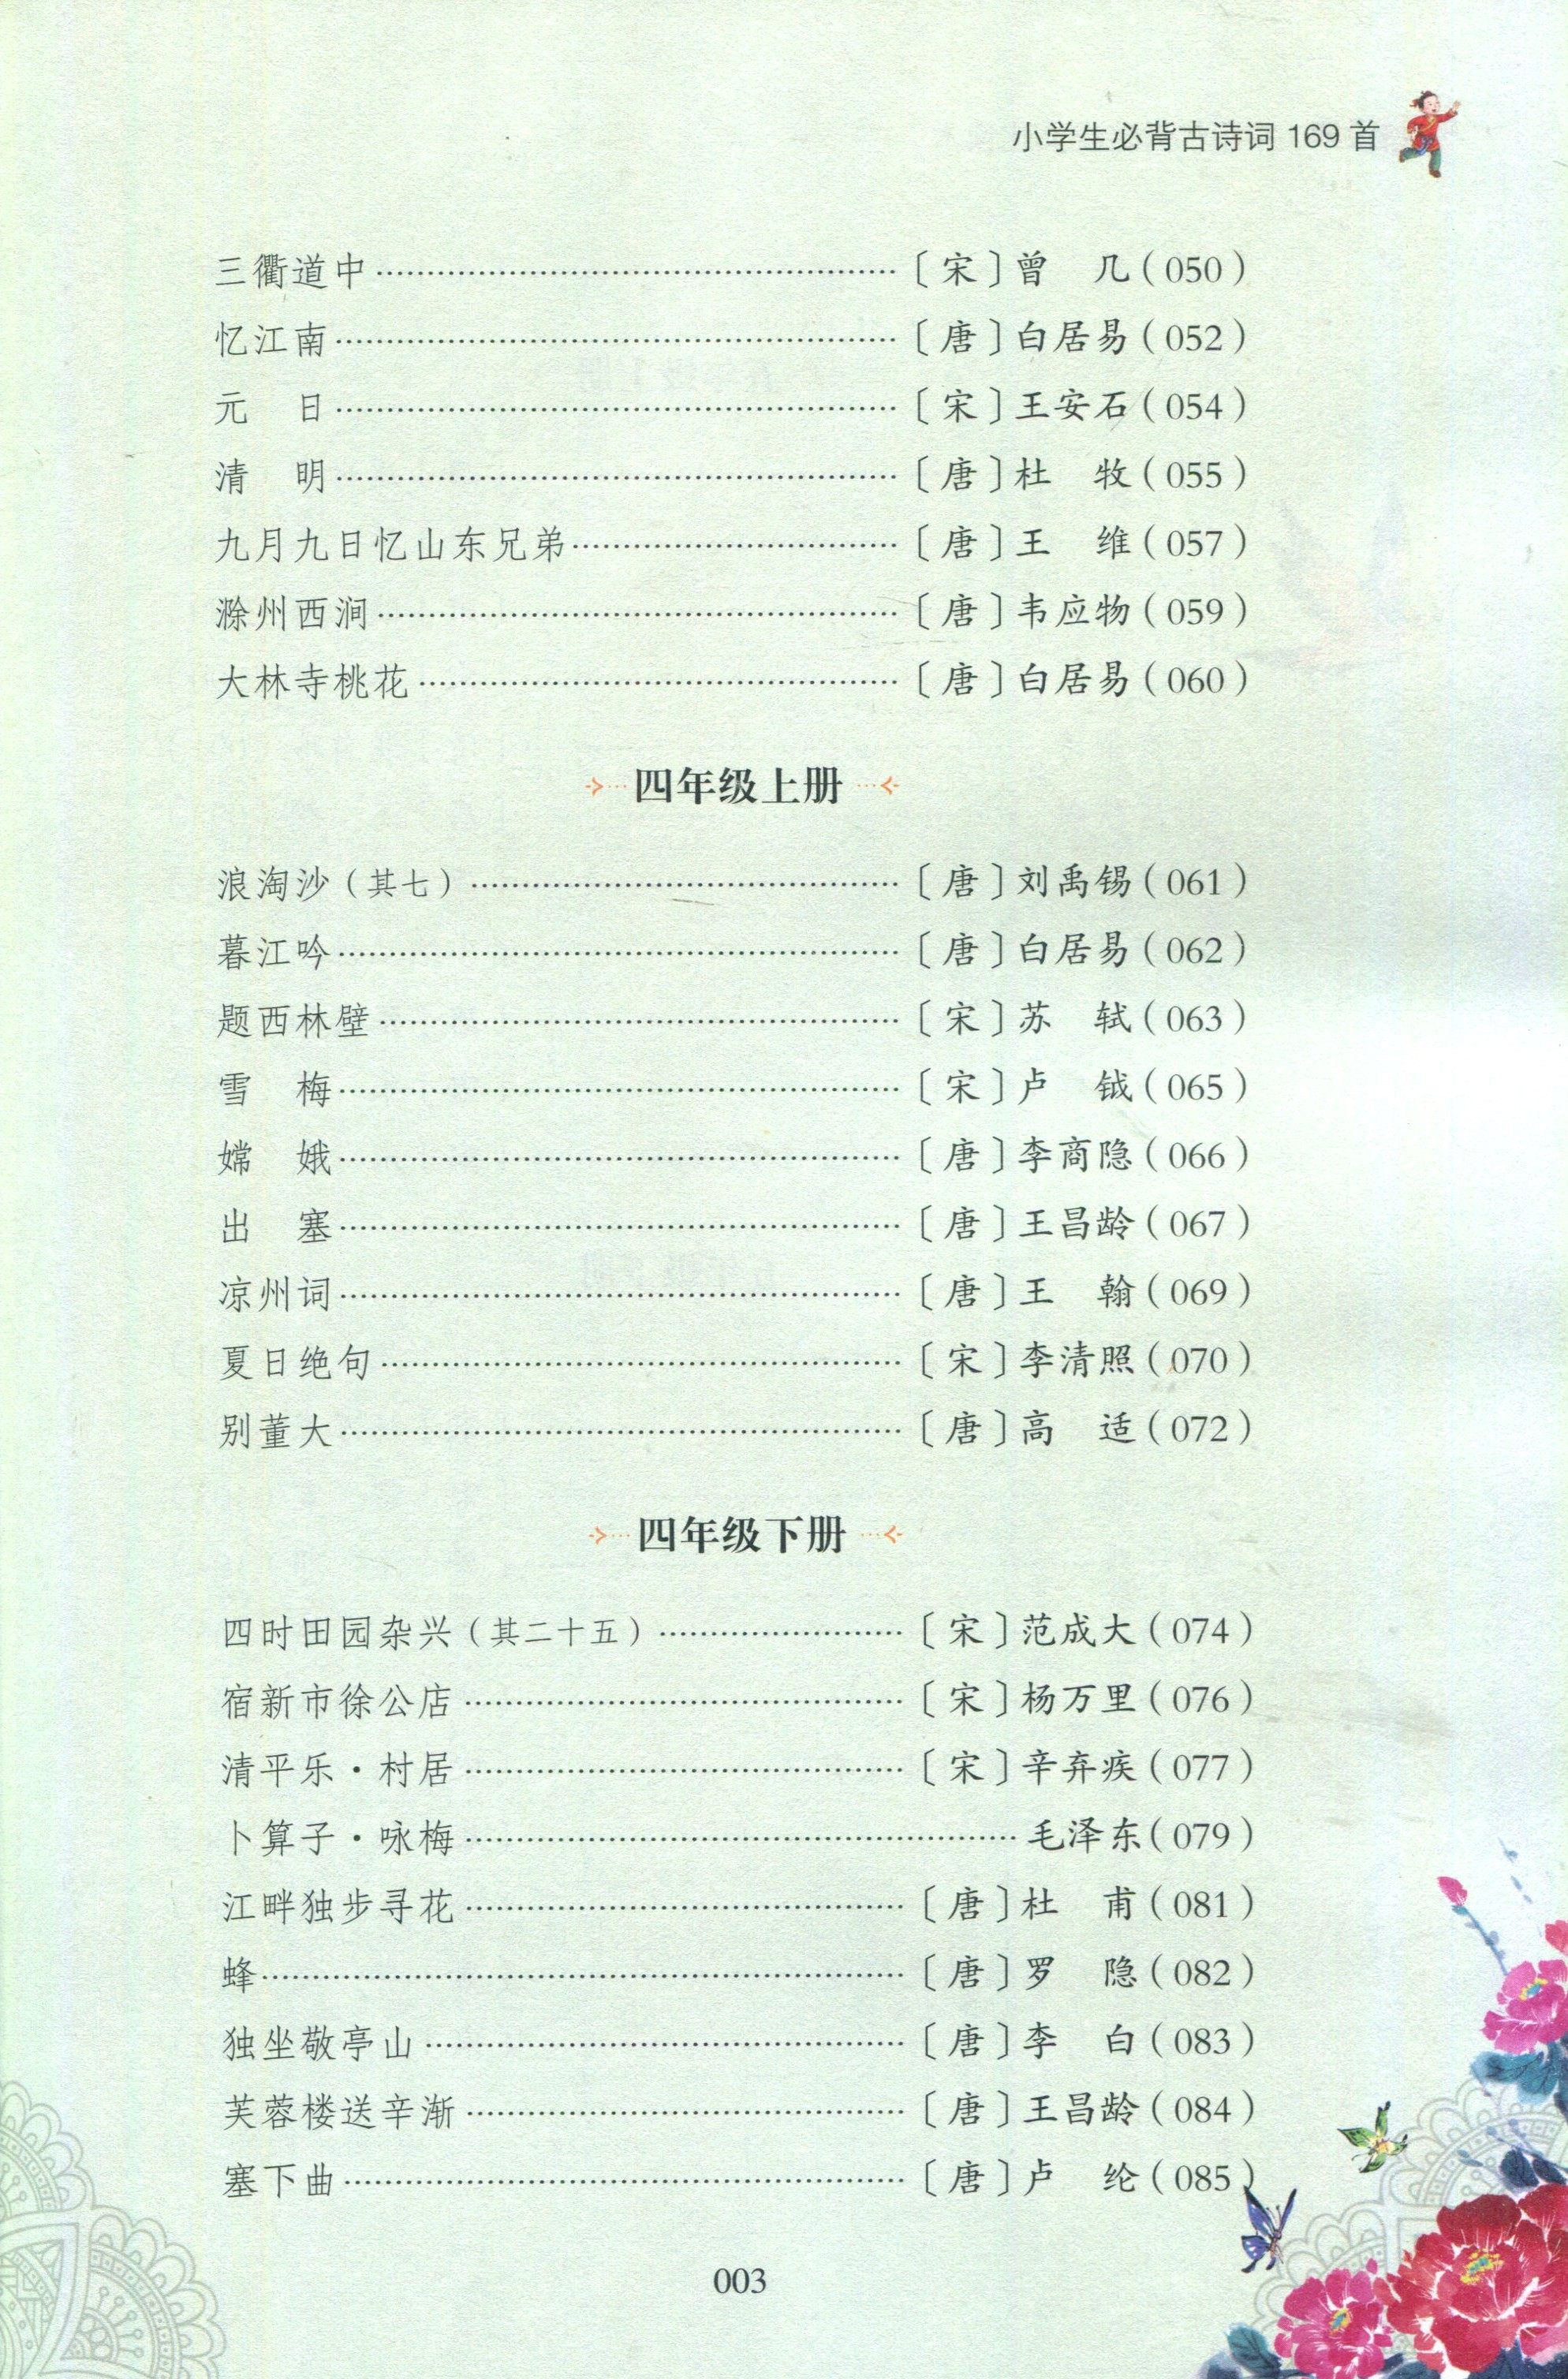 小学生必背古诗词 169 首
三衢道中……………………………………〔宋〕曾　几（050）
忆江南……………………………………〔唐〕白居易（052）
元　日……………………………………〔宋〕王安石（054）
清　明……………………………………〔唐〕杜　牧（055）
九月九日忆山东兄弟……………………〔唐〕王　维（057）
滁州西涧…………………………………〔唐〕韦应物（059）
大林寺桃花………………………………〔唐〕白居易（060）
四年级上册
浪淘沙（其七）…………………………〔唐〕刘禹锡（061）
暮江吟……………………………………〔唐〕白居易（062）
题西林壁…………………………………〔宋〕苏　轼（063）
雪　梅……………………………………〔宋〕卢　钺（065）
嫦　娥……………………………………〔唐〕李商隐（066）
出　塞……………………………………〔唐〕王昌龄（067）
凉州词……………………………………〔唐〕王　翰（069）
夏日绝句…………………………………〔宋〕李清照（070）
别董大……………………………………〔唐〕高　适（072）
四年级下册
四时田园杂兴（其二十五）……………〔宋〕范成大（074）
宿新市徐公店……………………………〔宋〕杨万里（076）
清平乐·村居……………………………〔宋〕辛弃疾（077）
卜算子·咏梅……………………………………毛泽东（079）
江畔独步寻花……………………………〔唐〕杜　甫（081）
蜂…………………………………………〔唐〕罗　隐（082）
独坐敬亭山………………………………〔唐〕李　白（083）
芙蓉楼送辛渐……………………………〔唐〕王昌龄（084）
塞下曲……………………………………〔唐〕卢　纶（085）
003